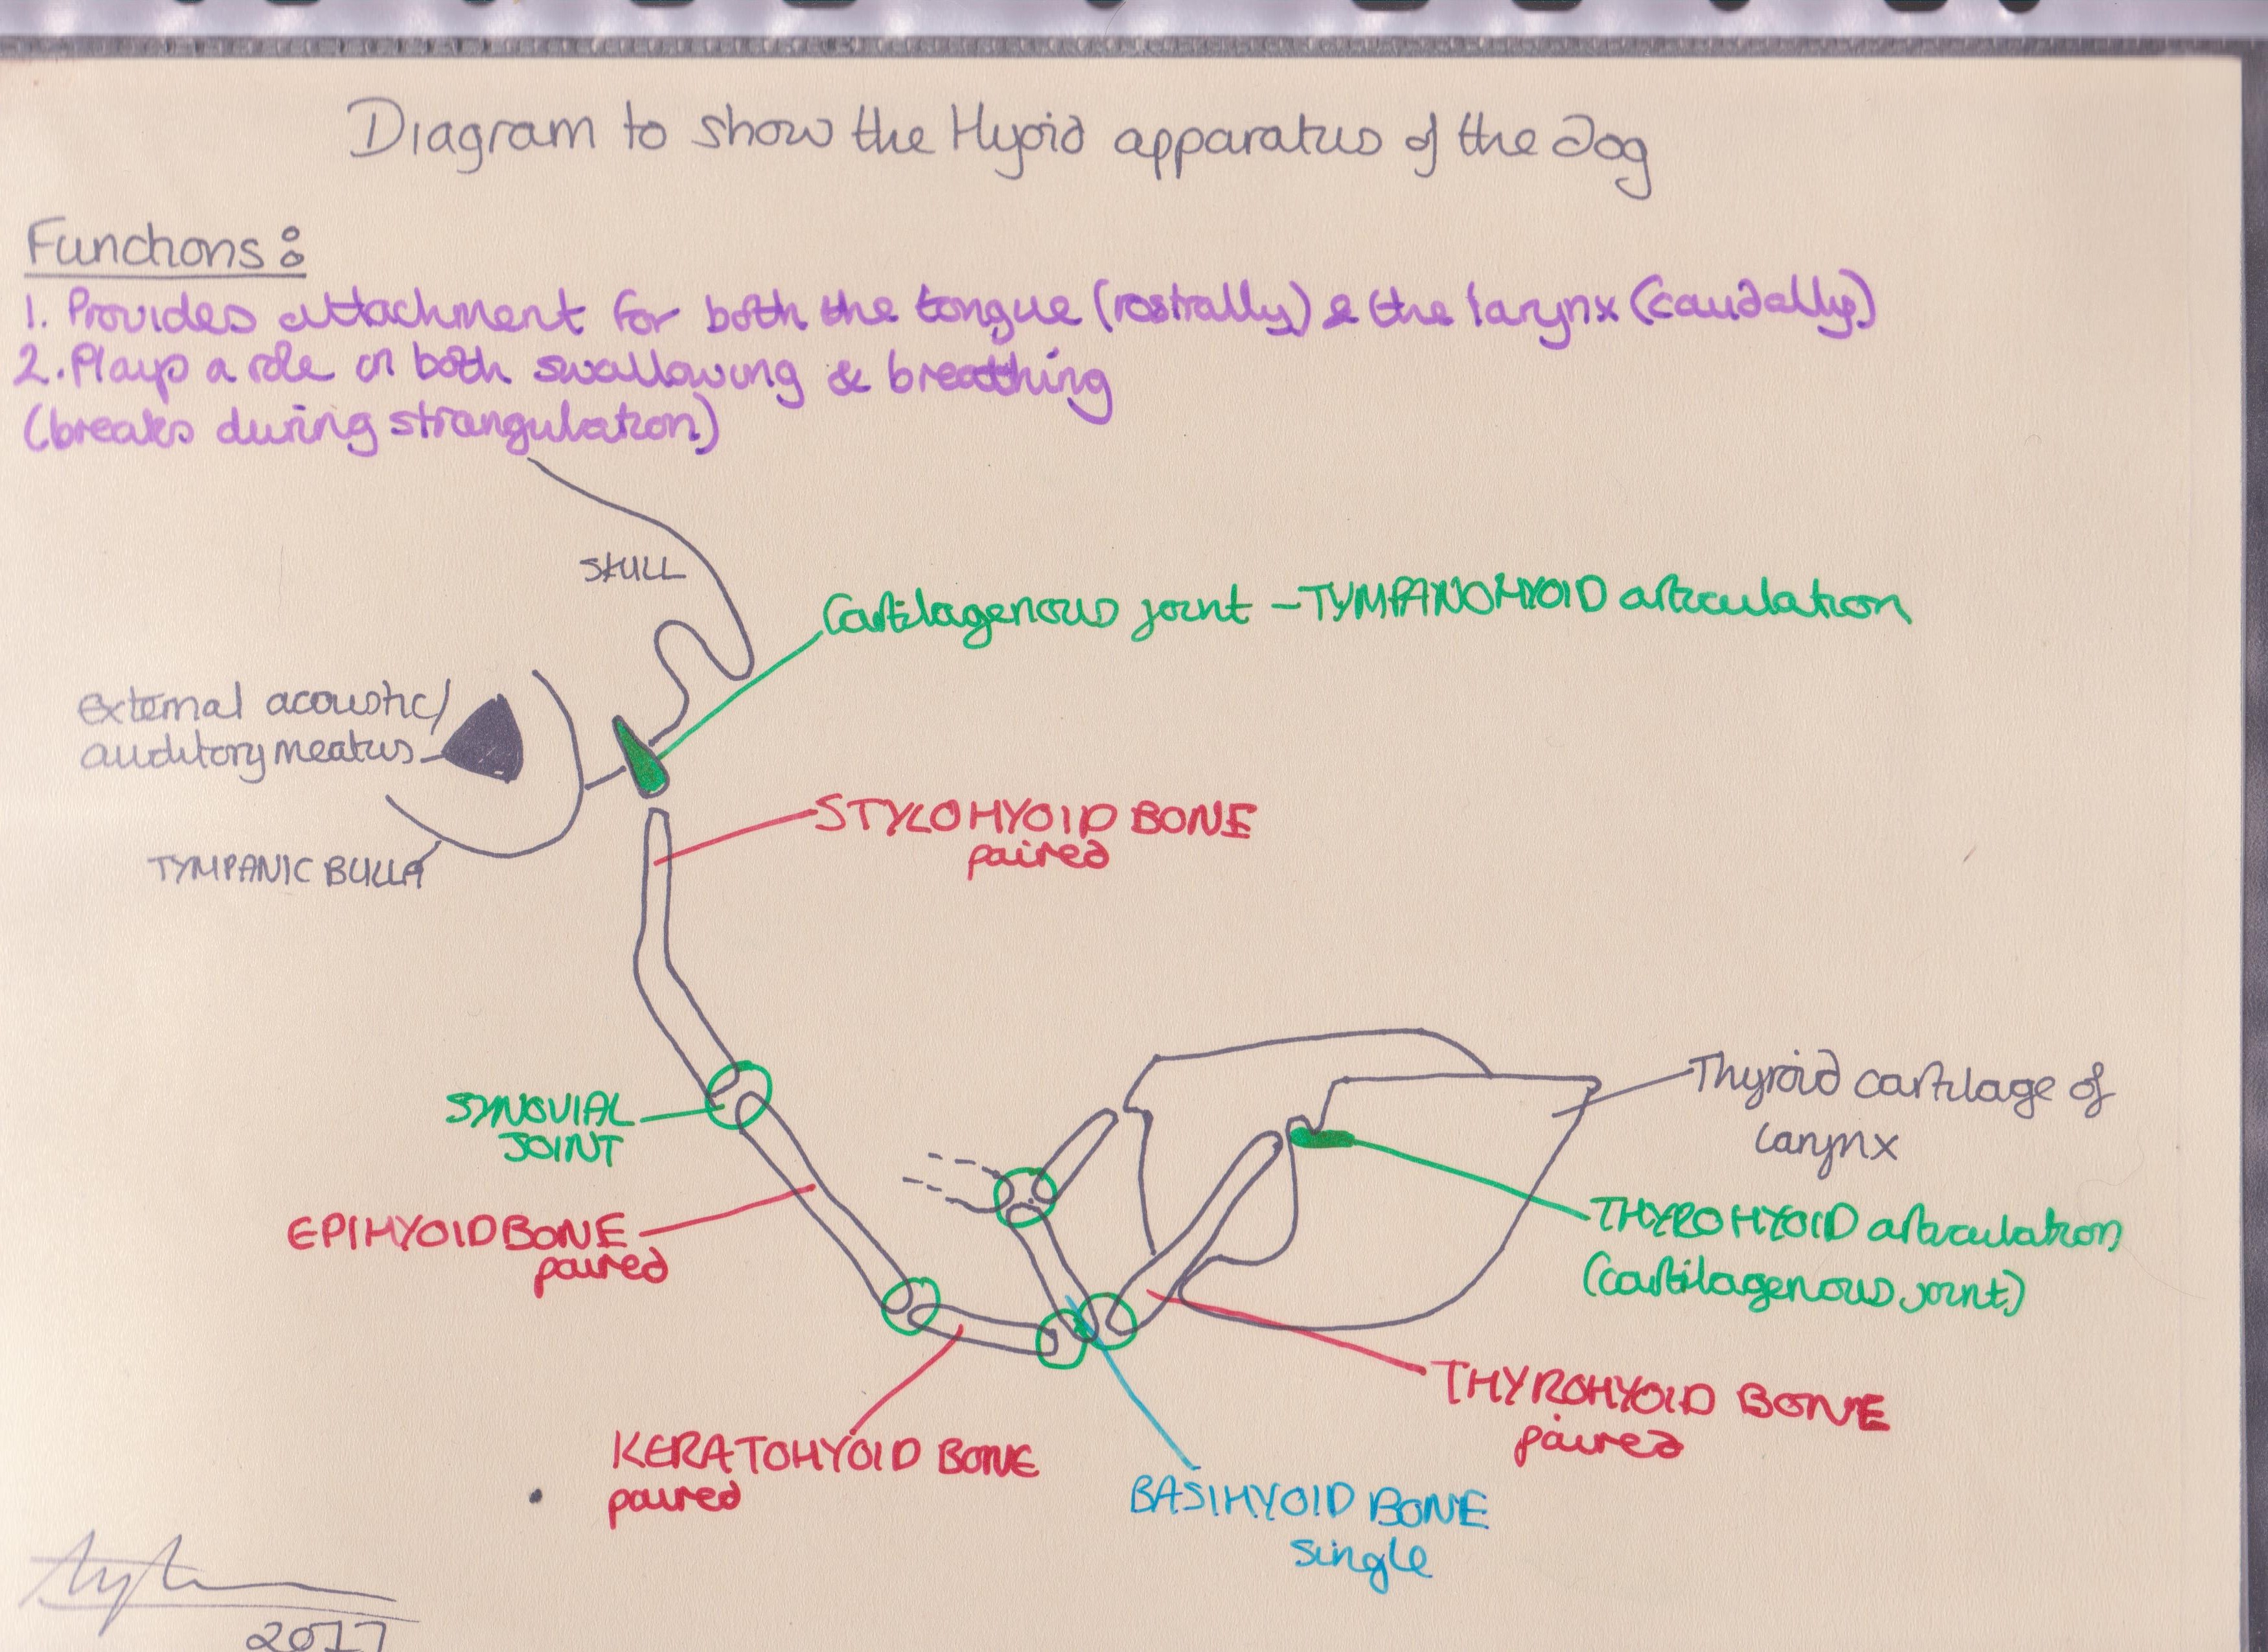 Diagram to show the Hyoid apparatus of the dog
Functions:
1. Provides attachment for both the tongue (rostrally) & the larynx (caudally)
2. Plays a role in both swallowing & breathing
(breaks during strangulation)
SKULL
Cartilagenous joint - TYMPANOHYOID articulation
external acoustic/
auditory meatus
TYMPANIC BULLA
STYLOHYOID BONE
paired
SYNOVIAL
JOINT
Thyroid cartilage of
larynx
EPIHYOID BONE
paired
THYROHYOID articulation
(cartilagenous joint)
THYROHYOID BONE
paired
KERATOHYOID BONE
paired
BASIHYOID BONE
single
2017